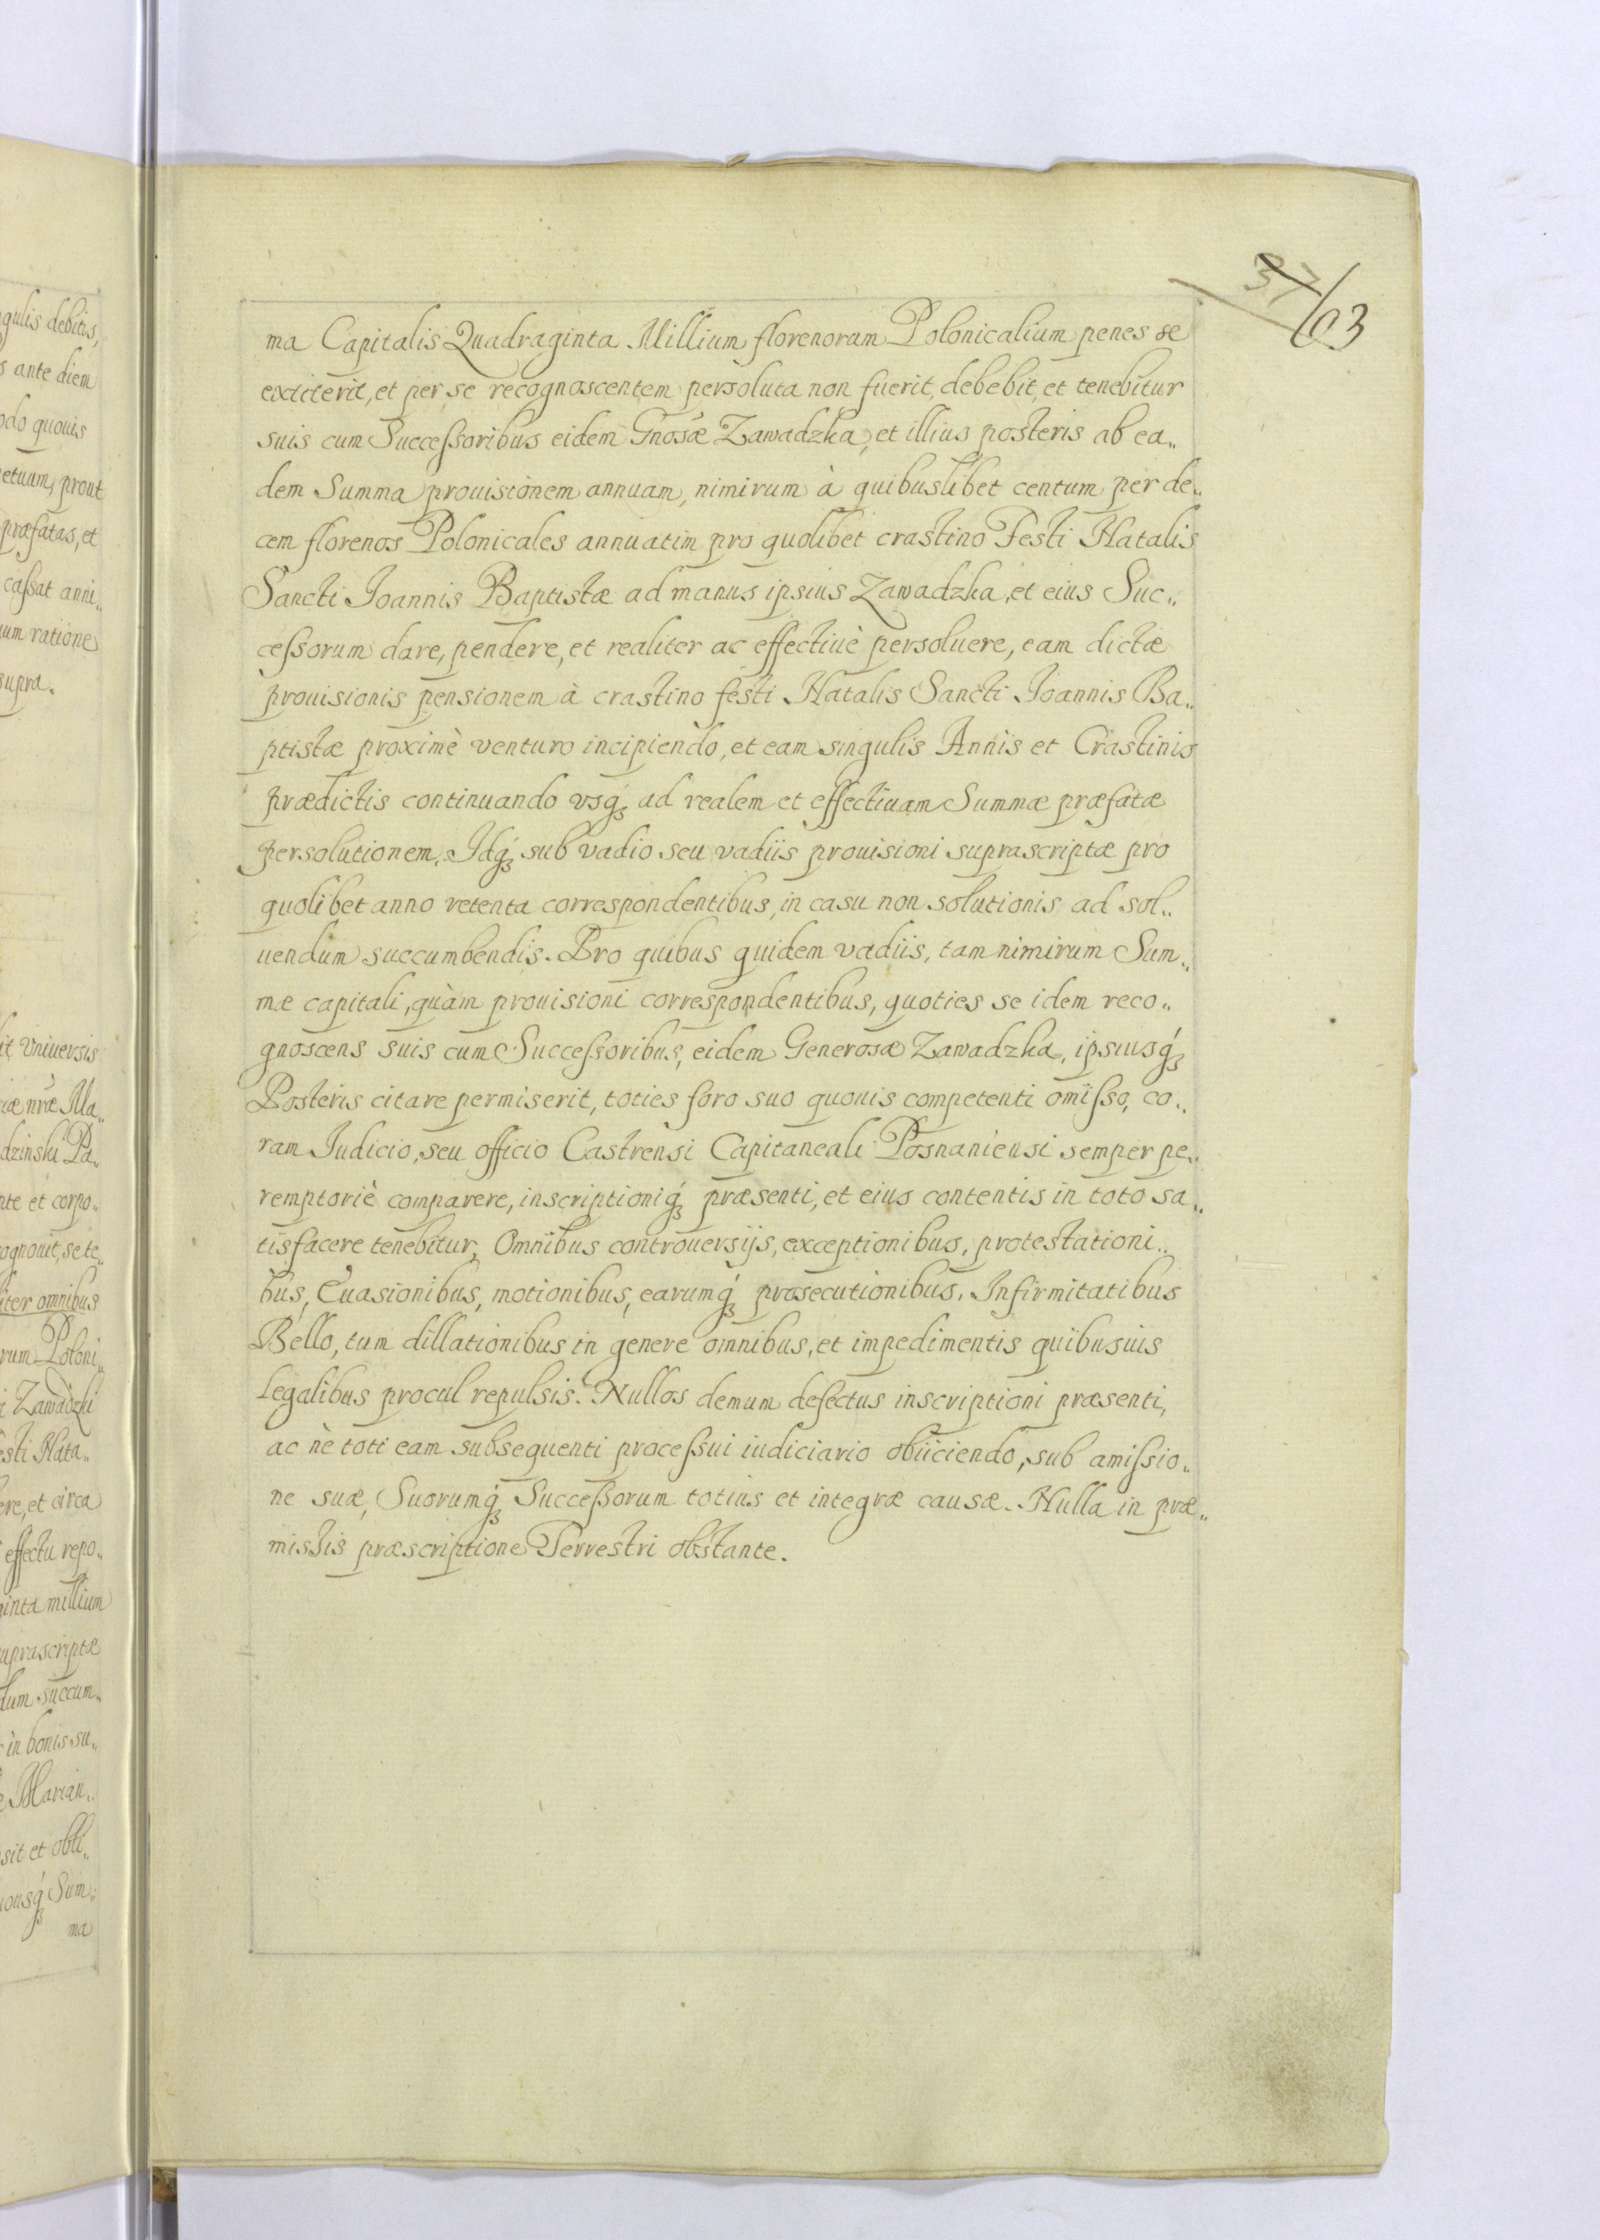 37
103
ma Capitalis Quadraginta Millium florenorum Polonicalium penes se
extiterit, et per se recognoscentem persoluta non fuerit, debebit, et tenebitur
suis cum Successoribus eidem Gnosæ Zawadzka, et illius posteris ab ea„
dem Summa prouisionem annuam, nimirum à quibuslibet centum per de„
cem florenos Polonicales annuatim pro quolibet crastino Festi Natalis
Sancti Joannis Baptistæ ad manus ipsius Zawadzka, et eius Suc„
cessorum dare, pendere, et realiter ac effectiuè persoluere, eam dictæ
prouisionis pensionem à crastino festi Natalis Sancti Joannis Ba„
ptistæ proximè venturo incipiendo, et eam singulis Annis et Crastinis
prædictis continuando vsq́ꝫ ad realem et effectiuam Summæ præfatæ
persolutionem. Idq́ꝫ sub vadio seu vadiis prouisioni suprascriptæ pro
quolibet anno retenta correspondentibus, in casu non solutionis ad sol„
uendum succumbendis. Pro quibus quidem vadiis, tam nimirum Sum„
mæ capitali, quàm prouisioni correspondentibus, quoties se idem reco„
gnoscens suis cum Successoribus, eidem Generosæ Zawadzka, ipsiusq́ꝫ
Posteris citare permiserit, toties foro suo quouis competenti omisso, co„
ram Iudicio, seu officio Castrensi Capitaneali Posnaniensi semper pe„
remptoriè comparere, inscriptioniq́ꝫ præsenti, et eius contentis in toto sa„
tisfacere tenebitur, Omnibus controuersijs, exceptionibus, protestationi„
bus, Euasionibus, motionibus, earumq́ꝫ prosecutionibus, Infirmitatibus
Bello, tum dillationibus in genere omnibus, et impedimentis quibusuis
Legalibus procul repulsis. Nullos demum defectus inscriptioni præsenti,
ac nè toti eam subsequenti processui iudiciario obiiciendo, sub amissio„
ne suæ, Suorumq́ꝫ Successorum totius et integræ causæ. Nulla in præ„
missis præscriptione Terrestri obstante.